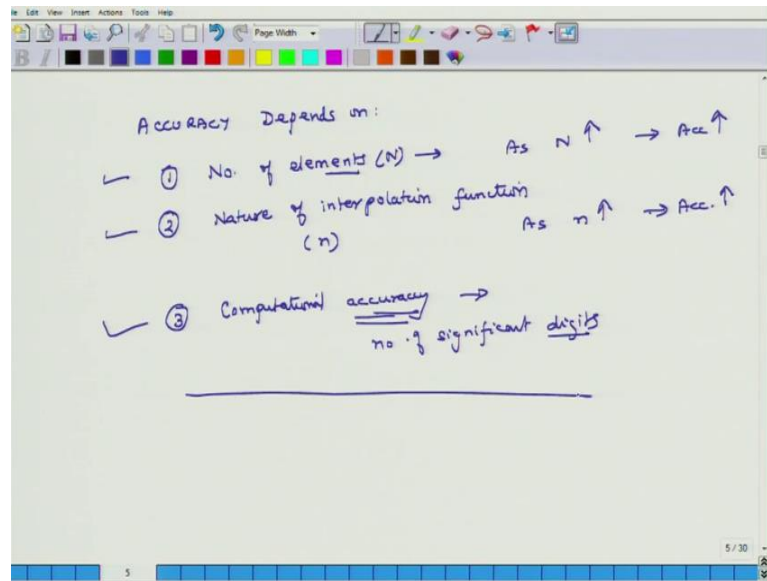 le Edit View Insert Actions Tools Help
Page Width
B I
ACCURACY Depends on:
① No. of elements (N) → As N ↑ → Acc ↑
② Nature of interpolation function
(n) As n ↑ → Acc. ↑
③ Computational accuracy →
no. of significant digits
5/30
5